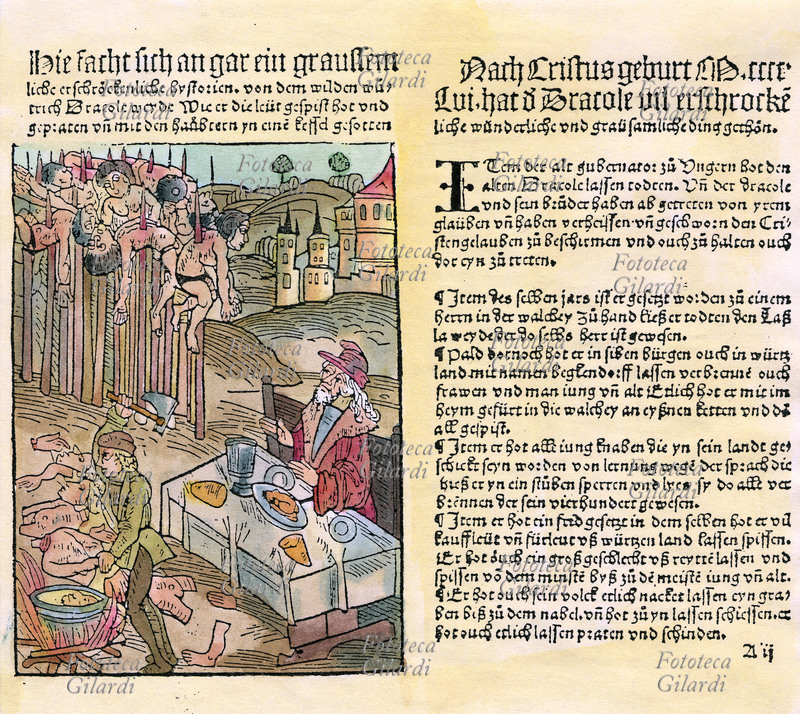 Hie facht sich an gar ein graussem
liche erschröckenliche hystorien. von dem wilden wü
trich Dracole weyde Wie er die leüt gespist hot vnd
gepraten vñ mit den haübtern yn einē kessel gesotten
Nach Cristus geburt M.cccc
Lvi. hat d̕ Dracole vil erschrockē
liche wünderliche vnd graüsamliche ding gethon.
ITem der alt gubernator zü Vngern hot den
alten Dracole lassen todten. Vñ der Dracole
vnd sein brüder haben ab getreten von yrem
glaüben vñ haben verheissen vñ geschworn den Cri
stengelauben zü beschirmen vnd ouch zü halten ouch
dor eyn zü treten.
¶ Item des selben jars ist er gesetzt worden zü einem
herrn in der walchey Zü hand ließ er todten den Laß
la weyde der do selbs herr ist gewesen.
¶ Pald dor noch hot er in siben bürgen ouch in würtz
land mit namen beglendorff lassen verbrenne ouch
frawen vnd man iung vñ alt Etlich hot er mit im
heym gefürt in die walchey an eyßnen ketten vnd do
all gespist.
¶ Item er hot alle iung knaben die yn sein lande ge
schickt seyn worden von lernung wegē der sprach die
hieß er yn ein stüben sperren vnd lyes sy do alle ver
brennen der sein vierhundert gewesen.
¶ Item er hot ein frid gesetzt in dem selben hot er vil
kauff leüt vñ fürleut vß würtzen land lassen spissen.
¶ Er hot ouch ein groß geschlecht vß reytte lassen vnd
spissen vō dem minstē byß zü dē meistē iung vñ alt.
¶ Er hot ouch sein volck etlich nacket lassen eyn gra
ben biß zü dem nabel. vñ hot zü yn lassen schiessen. er
hot ouch etlich lassen praten vnd schinden.
A ij
Fototeca
Gilardi